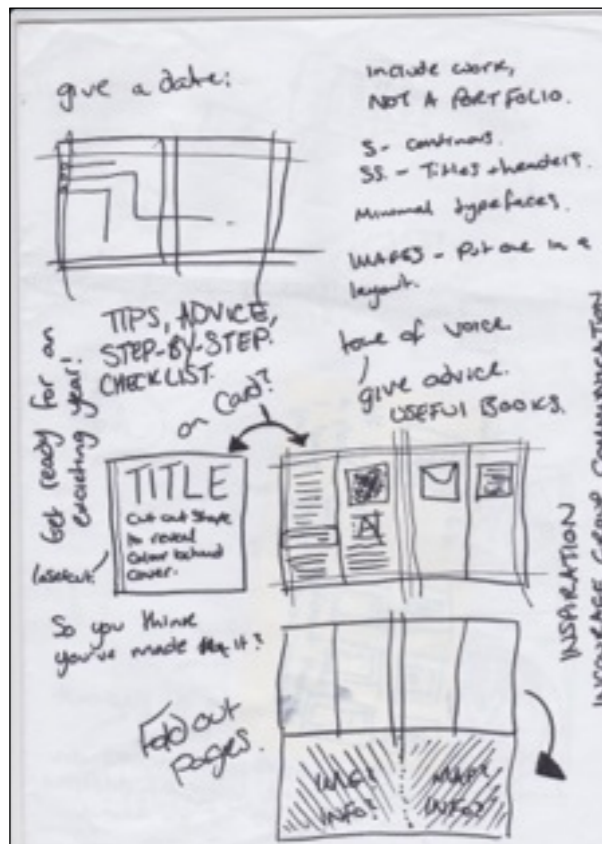 give a date:
Include work,
NOT A PORTFOLIO.
S - continous.
SS. - Titles + headers.
Minimal typefaces.
IMAGES - Put one in a
layout.
TIPS, ADVICE,
STEP-BY-STEP.
CHECKLIST.
tone of voice
give advice.
USEFUL BOOKS.
Get ready for an
exciting year!
on Card?
TITLE
Cut out Shape
to reveal
Colour behind
Cover.
lasercut?
So you think
you've made it?
Fold out
pages.
INFO?
INFO?
INSPIRATION
ENCOURAGE GROUP COMMUNICATION